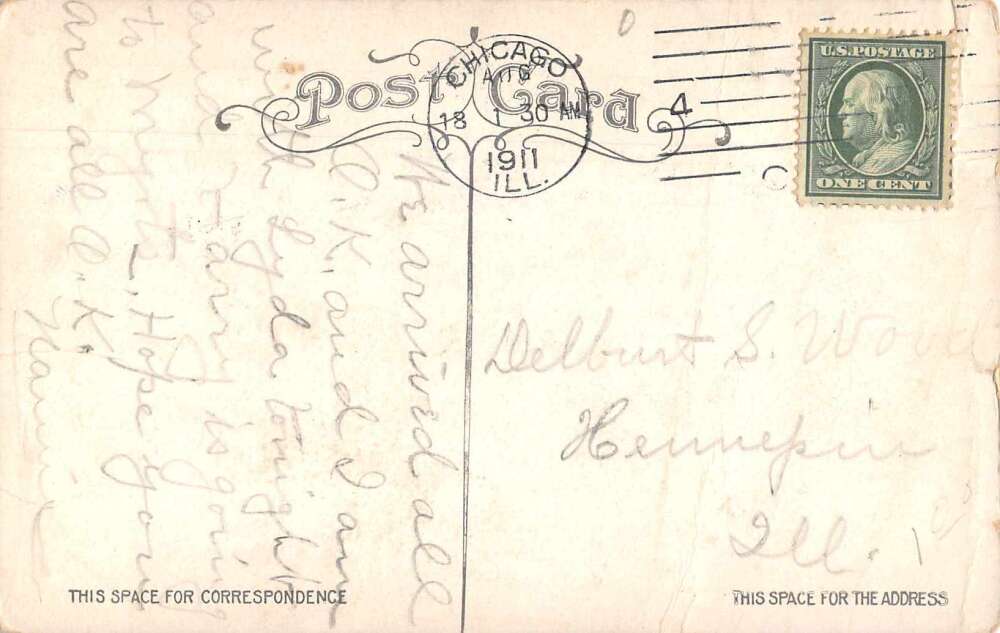 Post Card
CHICAGO
AUG
18 1 30 AM
1911
ILL.
4
C
U.S. POSTAGE
ONE CENT
We arrived all
O.K. and I am
with Lyda tonight
and Harry is going
to Hope you
are all O.K.
Delburt S. Wood
Hennepin
Ill.
THIS SPACE FOR CORRESPONDENCE
THIS SPACE FOR THE ADDRESS